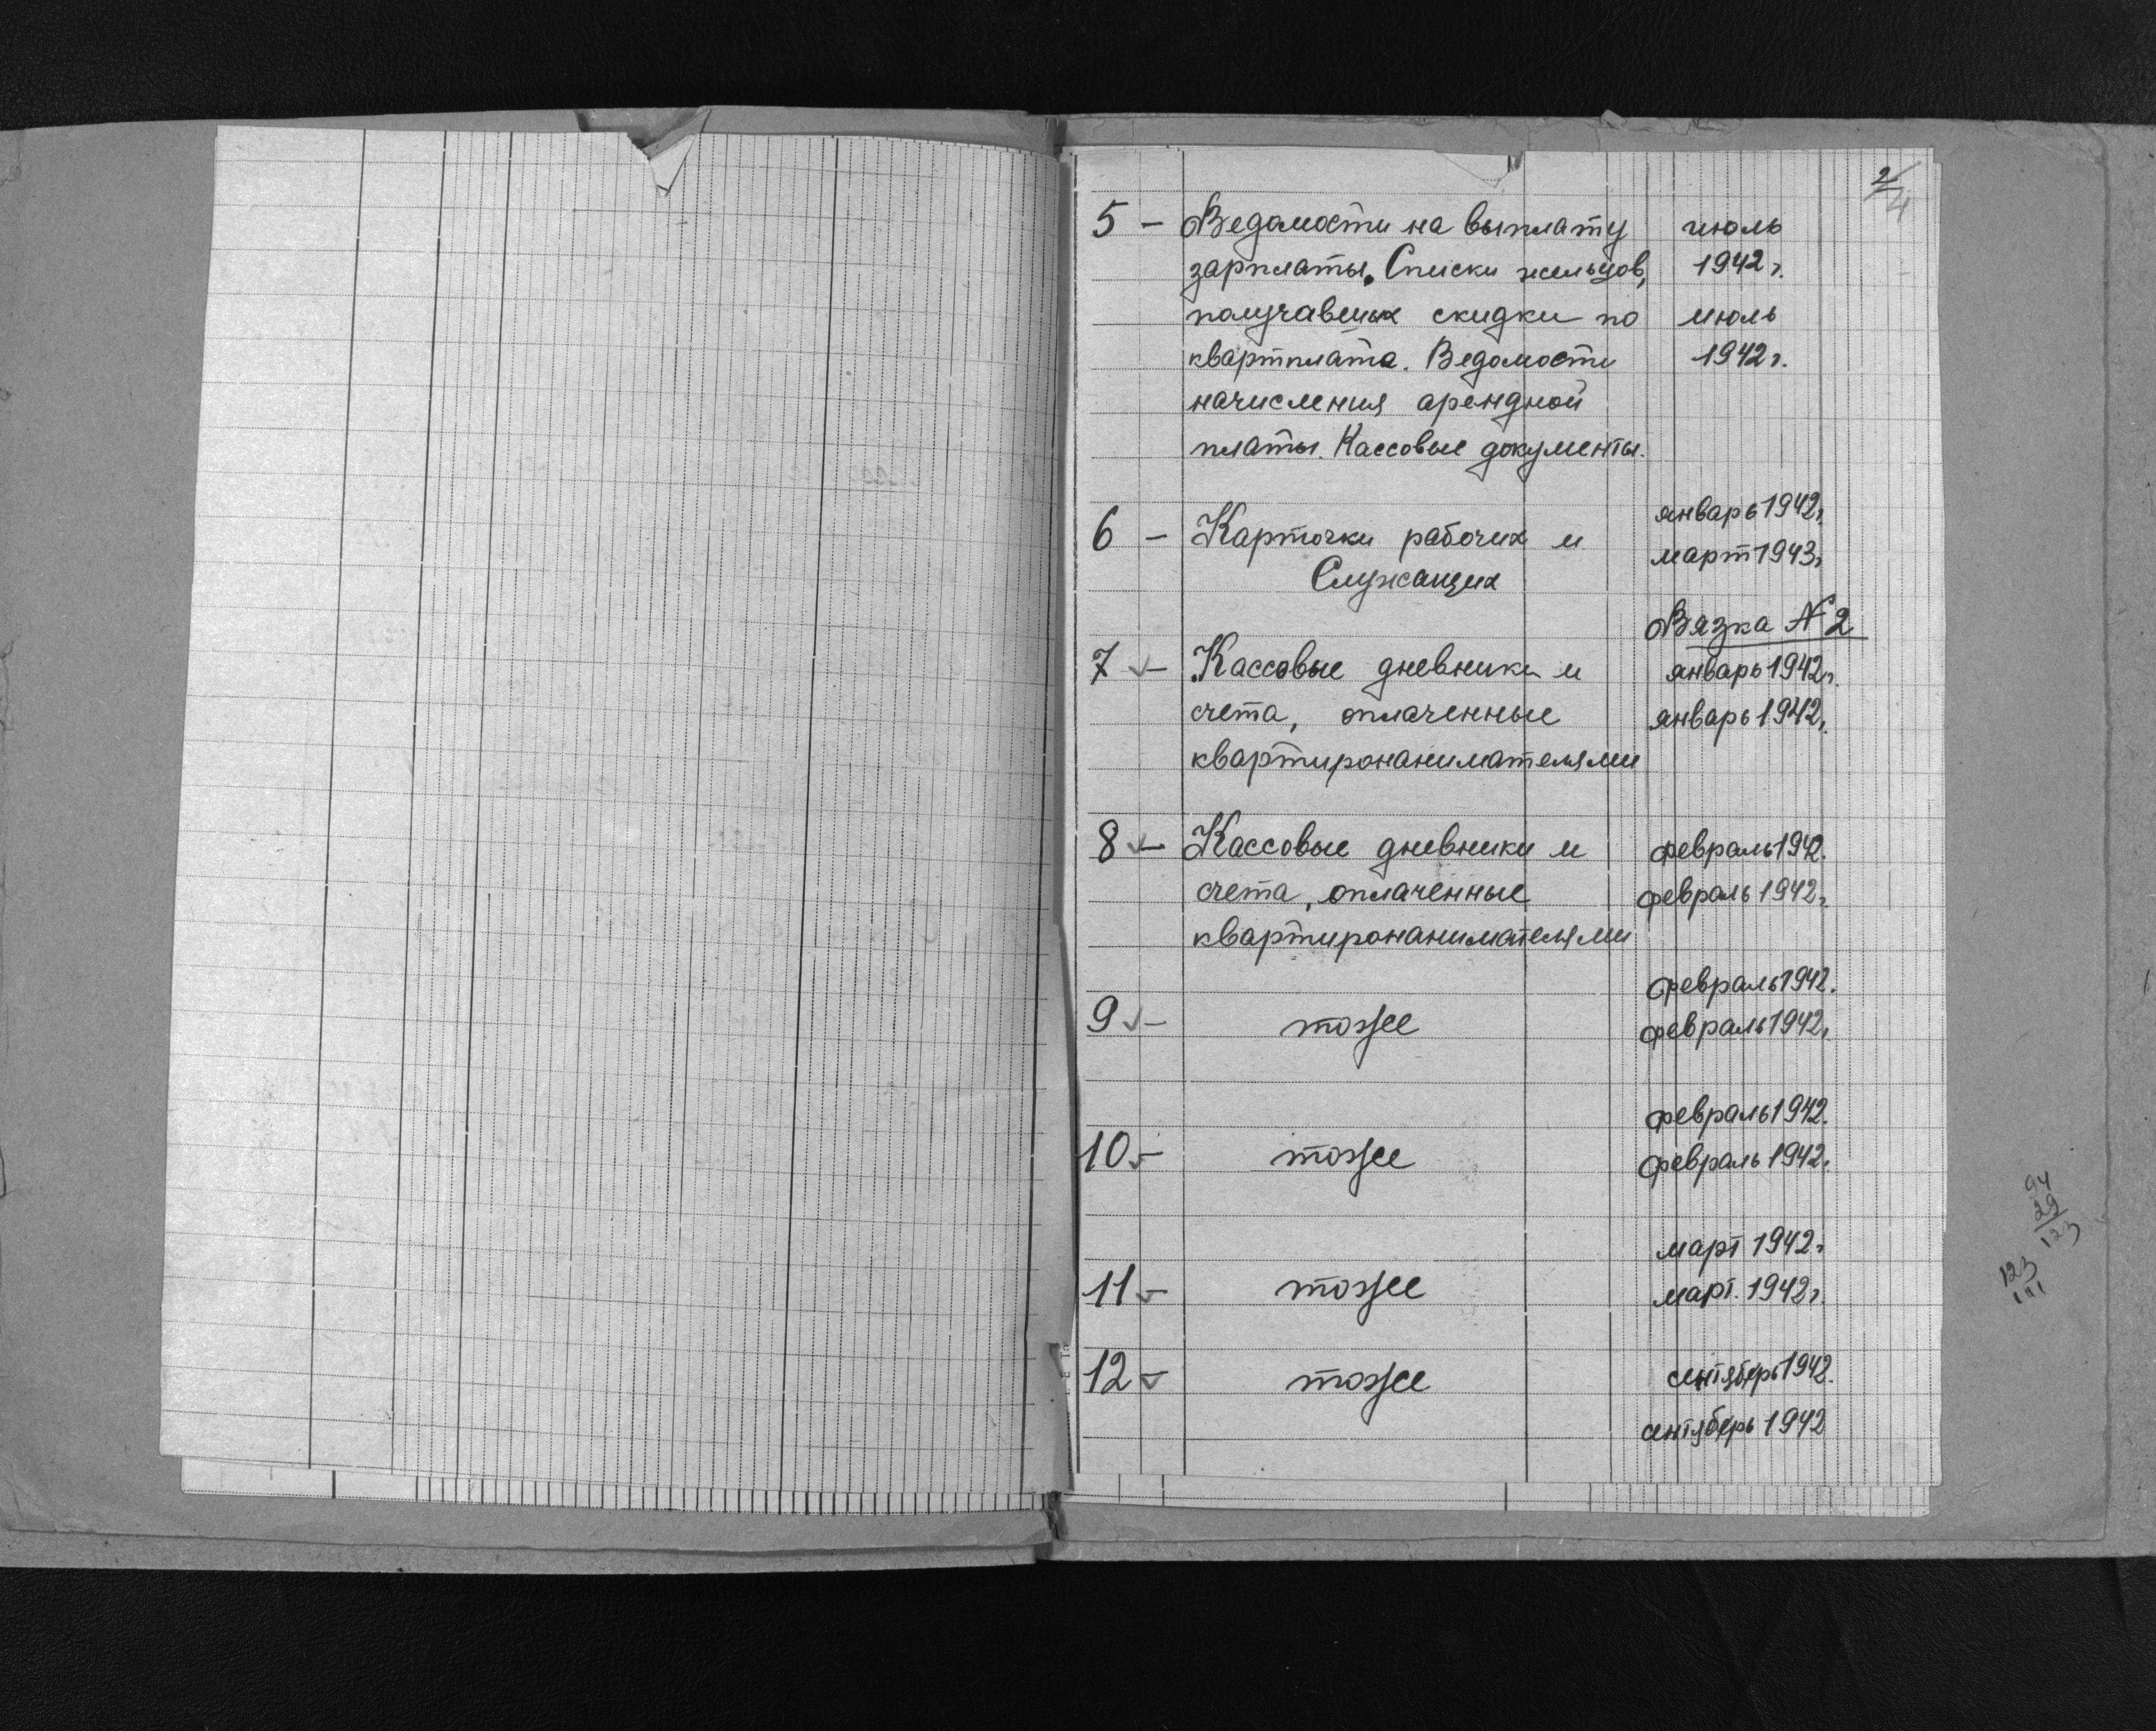 2/4
5 – Ведомости на выплату июль
зарплаты. Списки жильцов, 1942 г.
получавших скидки по июль
квартплата. Ведомости 1942 г.
начисления арендной
платы. Кассовые документы.
январь 1942 г.
6 – Карточки рабочих и
март 1943 г.
Служащих
Вязка № 2
7 – Кассовые дневники и январь 1942 г.
счета, оплаченные январь 1942 г.
квартиронанимателями
8 – Кассовые дневники и февраль 1942.
счета, оплаченные февраль 1942 г.
квартиронанимателями
февраль 1942.
9 – тоже февраль 1942 г.
февраль 1942.
10 – тоже февраль 1942.
март 1942 г.
11 – тоже март. 1942 г.
12 – тоже сентябрь 1942.
сентябрь 1942
94
29
123
123
111